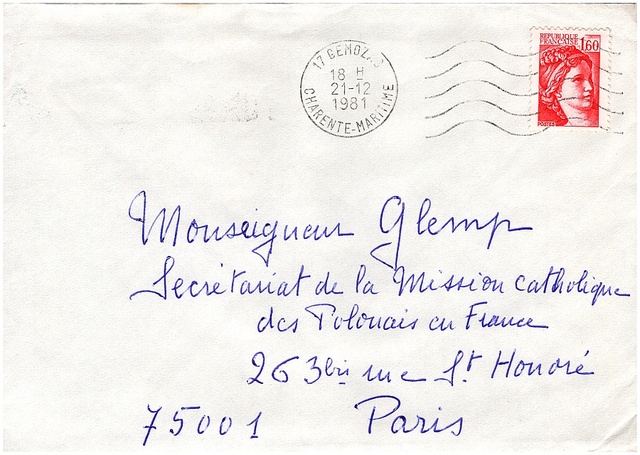 17 GEMOZAC
18 H
21-12
1981
CHARENTE-MARITIME
REPUBLIQUE
FRANÇAISE 1,60
POSTES
Monseigneur Glemp
Secrétariat de la Mission catholique
des Polonais en France
263bis rue St Honoré
75001 Paris